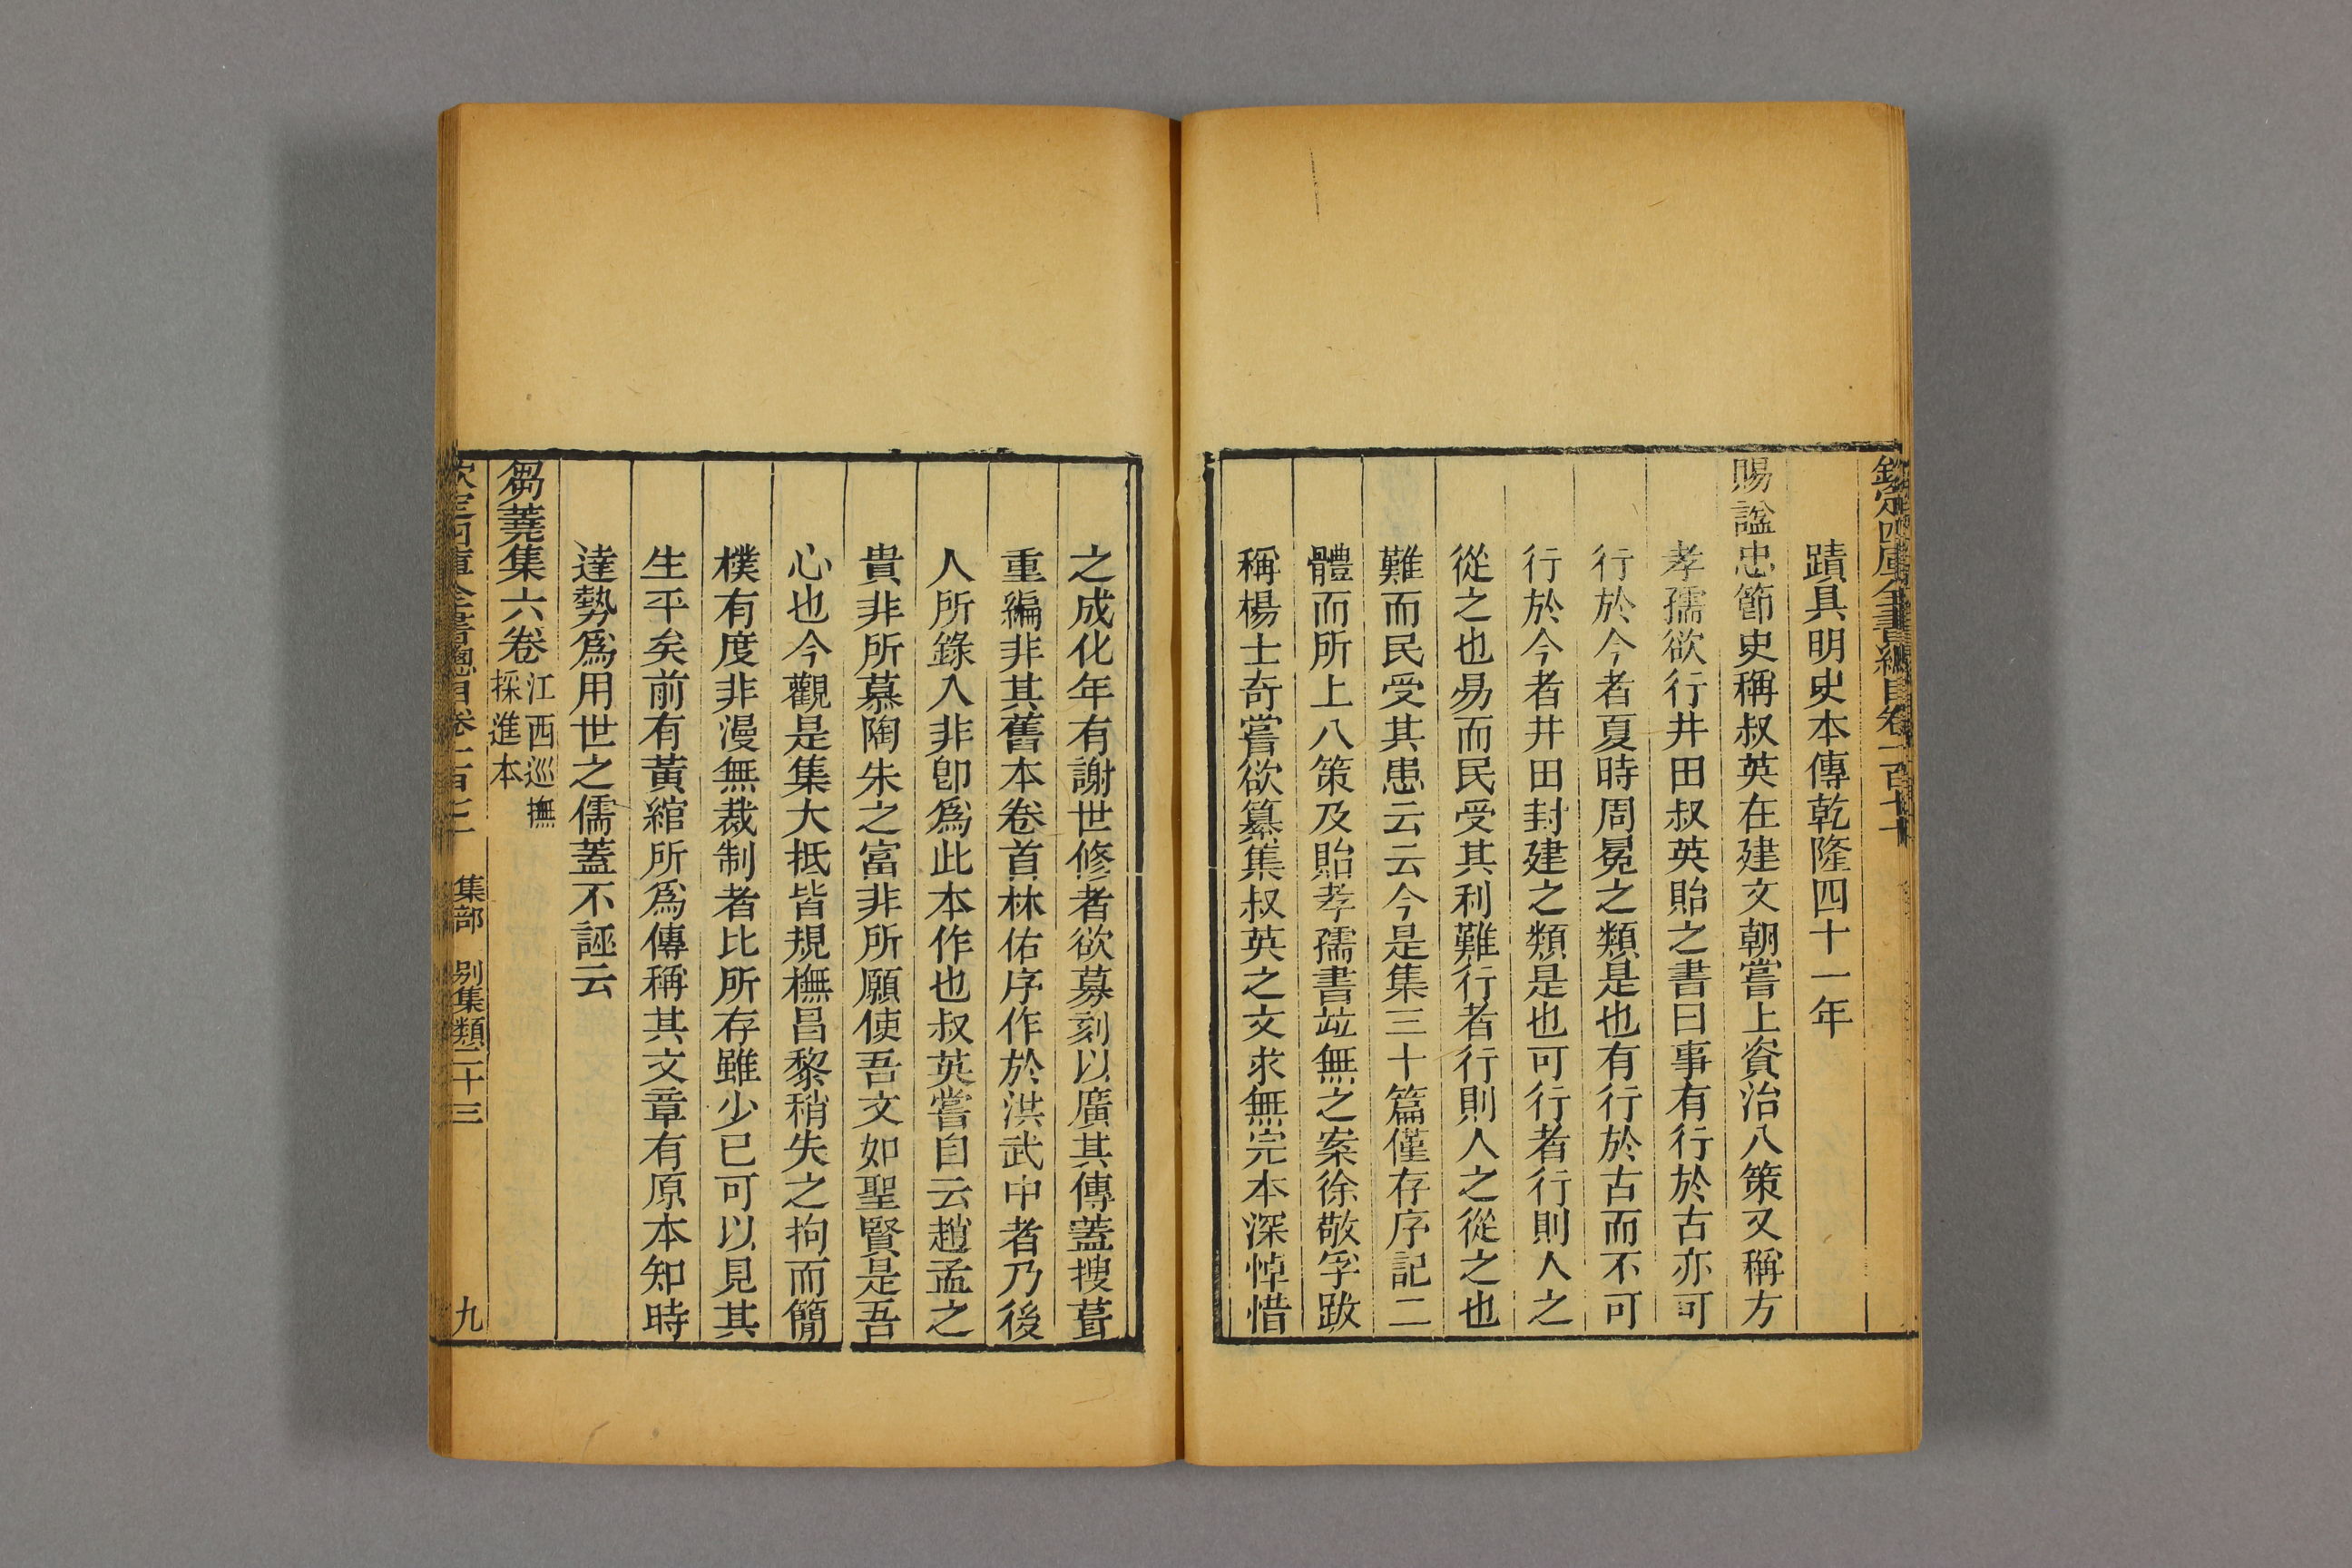 欽定四庫全書總目卷一百七十
蹟具明史本傳乾隆四十一年
賜諡忠節史稱叔英在建文朝嘗上資治八策又稱方
孝孺欲行井田叔英貽之書曰事有行於古亦可
行於今者夏時周冕之類是也有行於古而不可
行於今者井田封建之類是也可行者行則人之
從之也易而民受其利難行者行則人之從之也
難而民受其患云云今是集三十篇僅存序記二
體而所上八策及貽孝孺書竝無之案徐敬孚跋
稱楊士奇嘗欲纂集叔英之文求無完本深悼惜
之成化年有謝世修者欲募刻以廣其傳蓋搜葺
重編非其舊本卷首林佑序作於洪武中者乃後
人所錄入非卽爲此本作也叔英嘗自云趙孟之
貴非所慕陶朱之富非所願使吾文如聖賢是吾
心也今觀是集大抵皆規橅昌黎稍失之拘而簡
樸有度非漫無裁制者比所存雖少已可以見其
生平矣前有黃綰所爲傳稱其文章有原本知時
達勢爲用世之儒蓋不誣云
芻蕘集六卷
江西巡撫
採進本
欽定四庫全書總目卷一百七
集部 別集類二十三
九